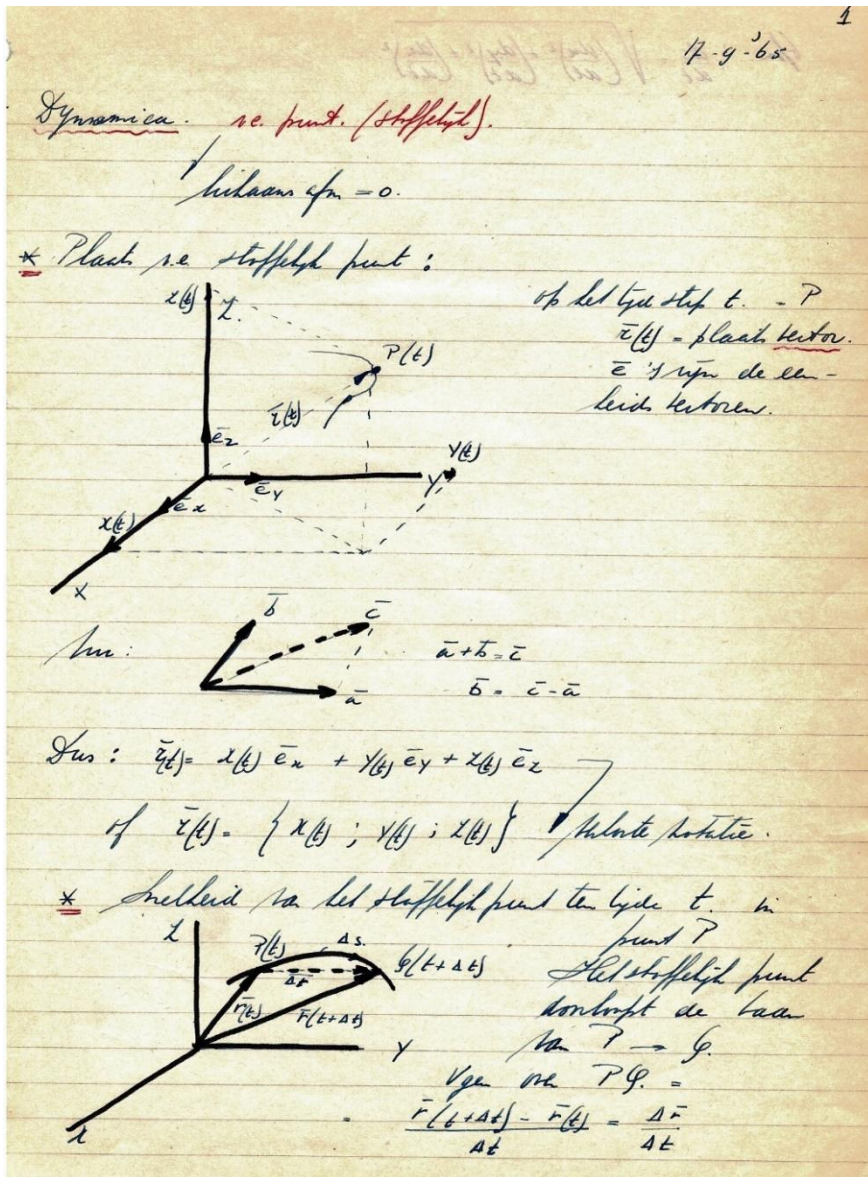 1
17-9-'65
Dynamica. v.e. punt. (stoffelijk).
lichaams afm = 0.
* Plaats v.e. stoffelijk punt :
z(t) Z.
op het tijdstip t. = P
P(t)
r̄(t) = plaats vector.
ē's zijn de een-
heids vectoren.
r̄(t)
ēz
Y(t)
ēy Y
ēx
x(t)
X
b̄ c̄
ā + b̄ = c̄
b̄ = c̄ - ā
ā
Dus : r̄(t) = x(t) ēx + y(t) ēy + z(t) ēz
of r̄(t) = { x(t) ; y(t) ; z(t) } verkorte notatie.
* Snelheid van het stoffelijk punt ten tijde t. in
punt P
Z P(t) Δs. Q(t+Δt)
Δr̄
Het stoffelijk punt
r̄(t) r̄(t+Δt)
doorloopt de baan
van P → Q.
Y
Vgem over PQ. =
X
r̄(t+Δt) - r̄(t) / Δt = Δr̄ / Δt